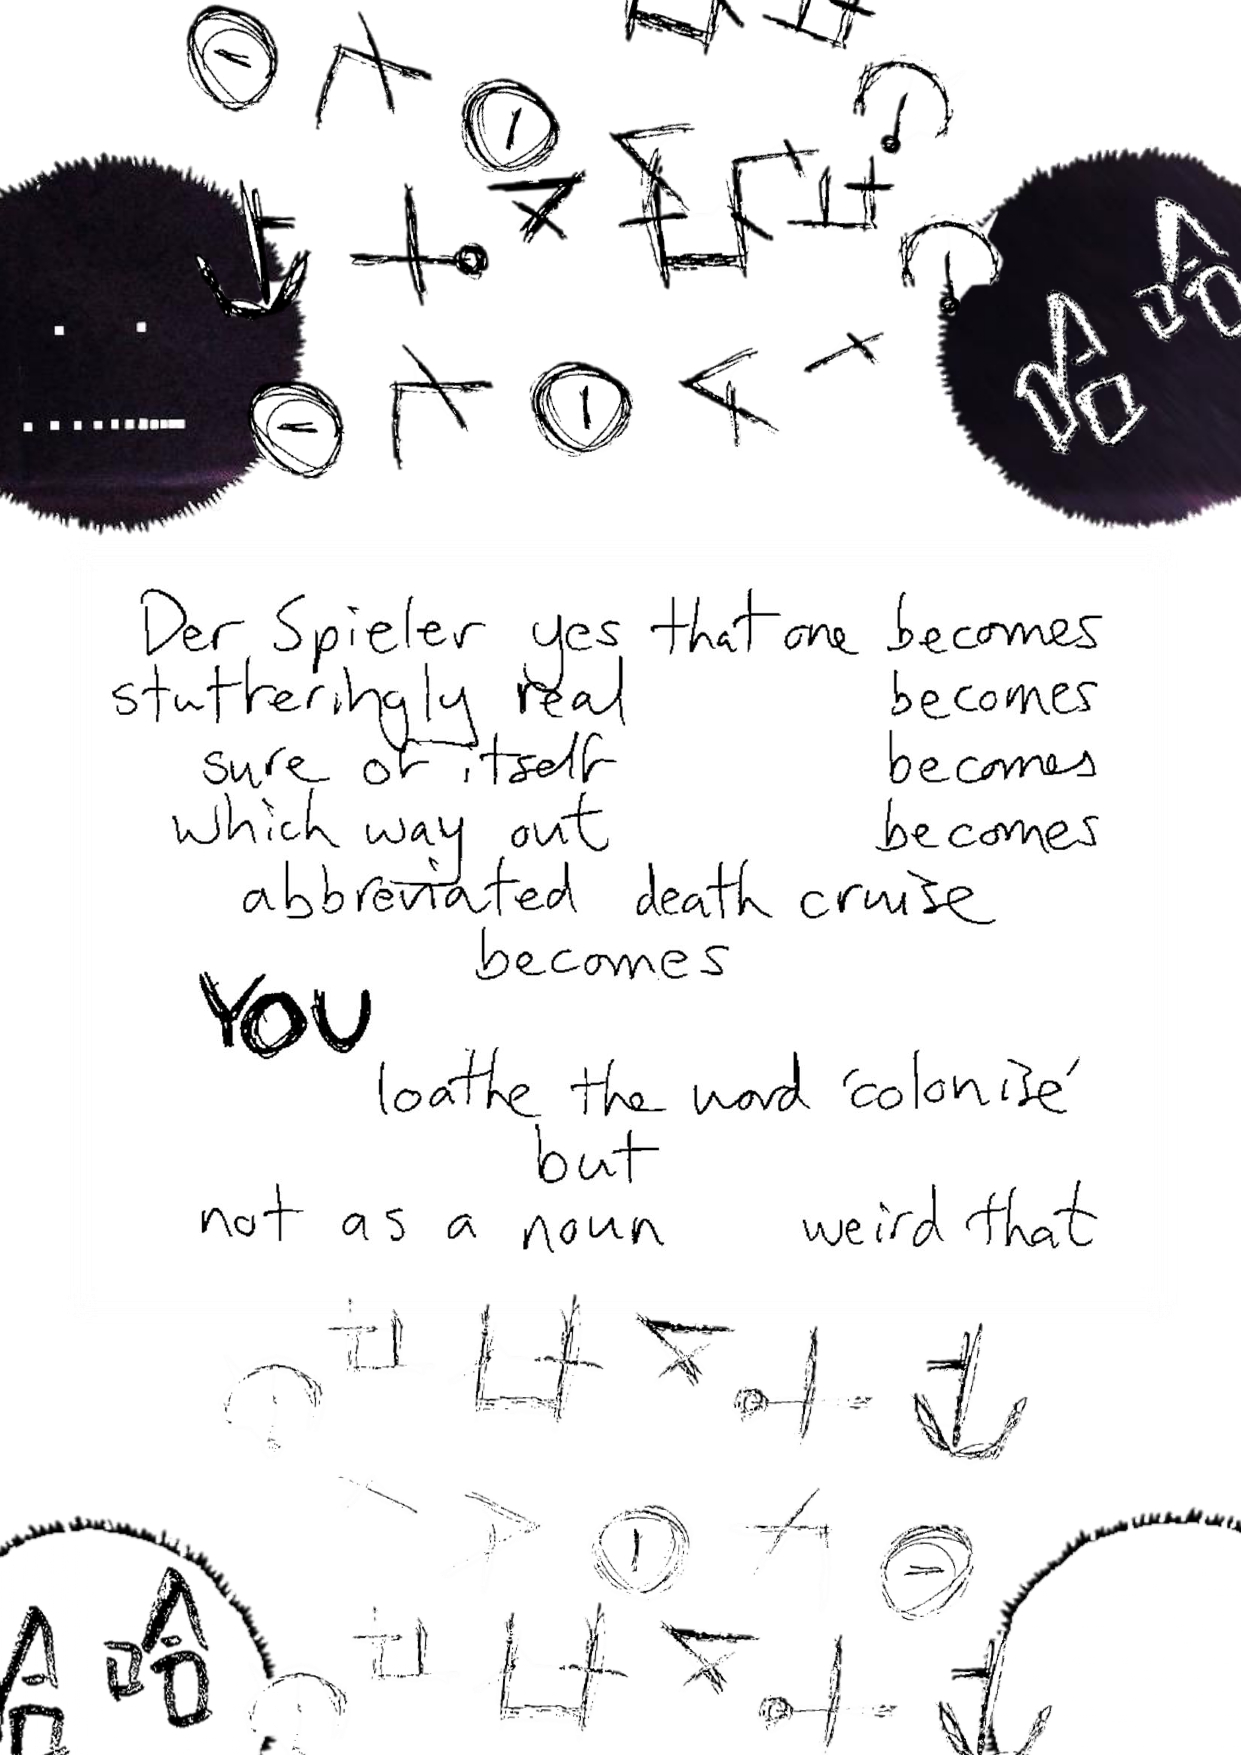 Der Spieler yes that one becomes
stutteringly real becomes
sure of itself becomes
which way out becomes
abbreviated death cruise
becomes
YOU
loathe the word 'colonise'
but
not as a noun weird that